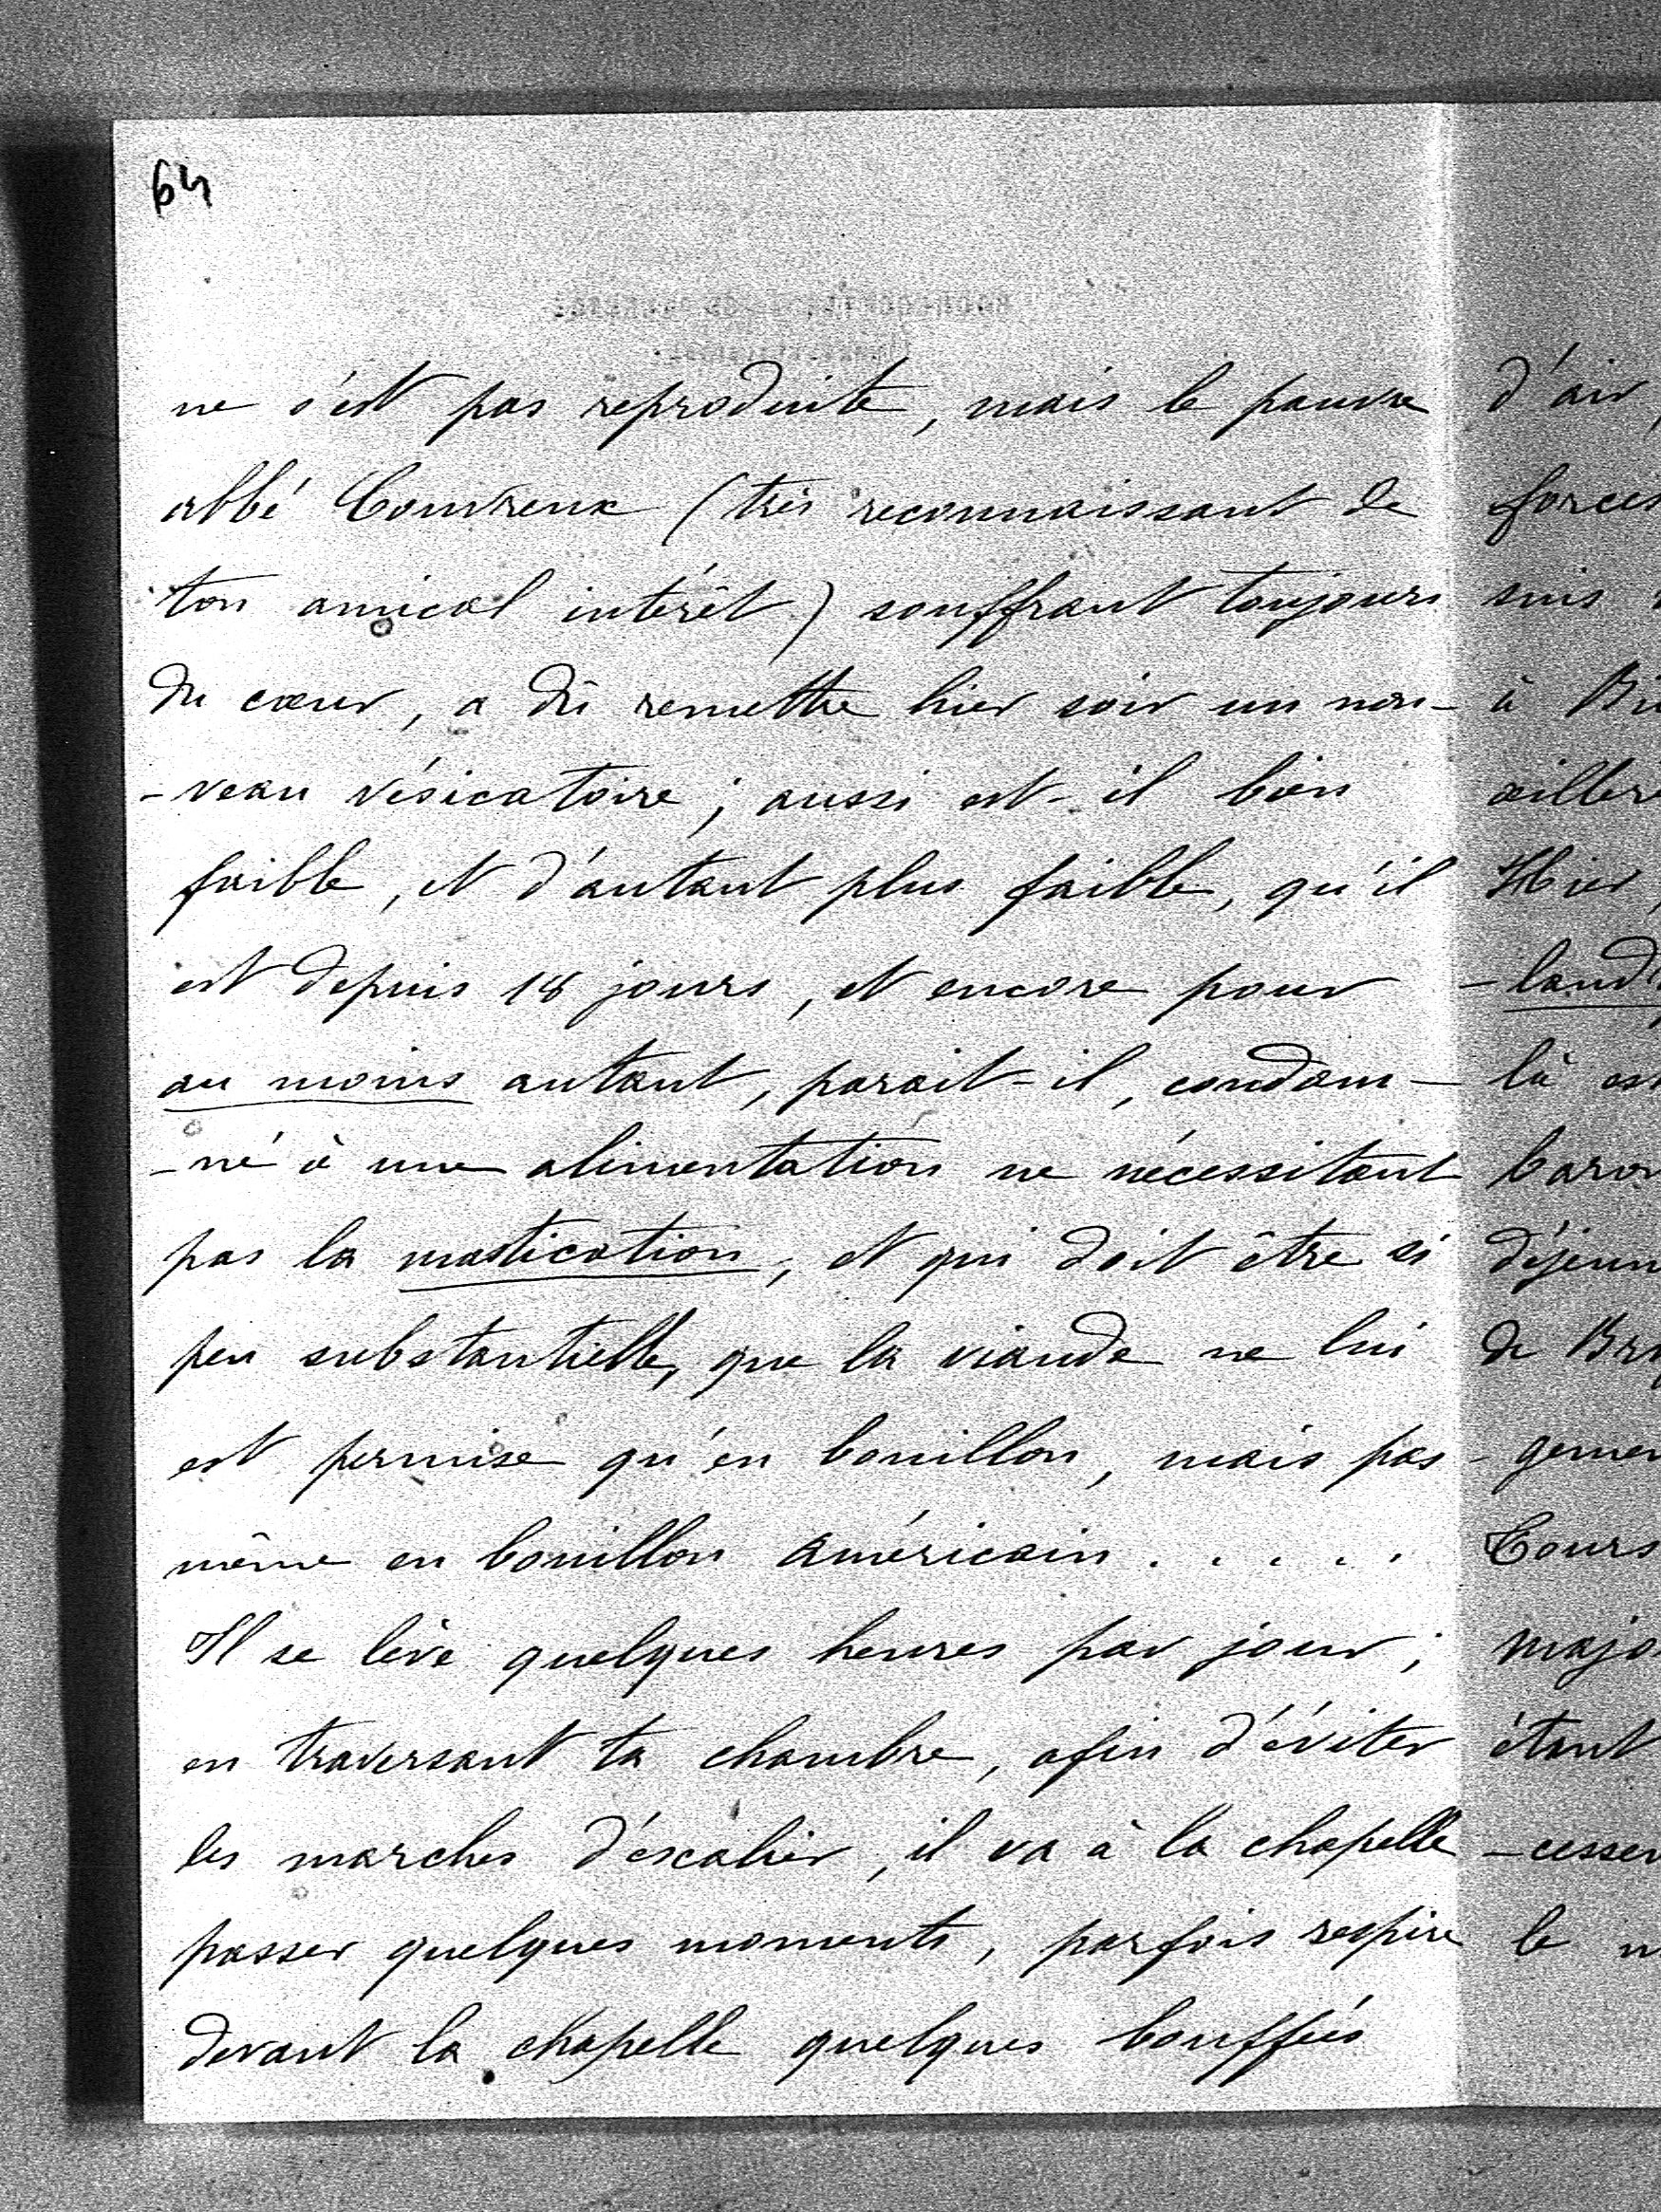 64
ne s'est pas reproduite, mais le pauvre
abbé Couvreux (très reconnaissant de
ton amical intérêt) souffrant toujours
du cœur, a dû remettre hier soir un nou-
-veau vésicatoire; aussi est-il bien
faible, et d'autant plus faible, qu'il
est depuis 18 jours, et encore pour
au moins autant, parait-il, condam-
-né à une alimentation ne nécessitant
pas la mastication, et qui doit être si
peu substantielle, que la viande ne lui
est permise qu'en bouillon, mais pas
même en bouillon américain.....
Il se lève quelques heures par jour;
en traversant ta chambre, afin d'éviter
les marches d'escalier, il va à la chapelle
passer quelques moments, parfois respire
devant la chapelle quelques bouffées
d'air,
forces
suis
à
Hier,
là
déjeun
de
gemen
Cours
majo
étant
-cesser
le